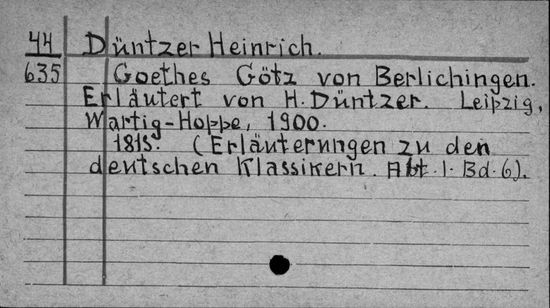 44 Düntzer Heinrich.
635 Goethes Götz von Berlichingen.
Erläutert von H. Düntzer. Leipzig,
Wartig-Hoppe, 1900.
181S. (Erläterungen zu den
deutschen Klassikern. Abt. 1. Bd. 6).